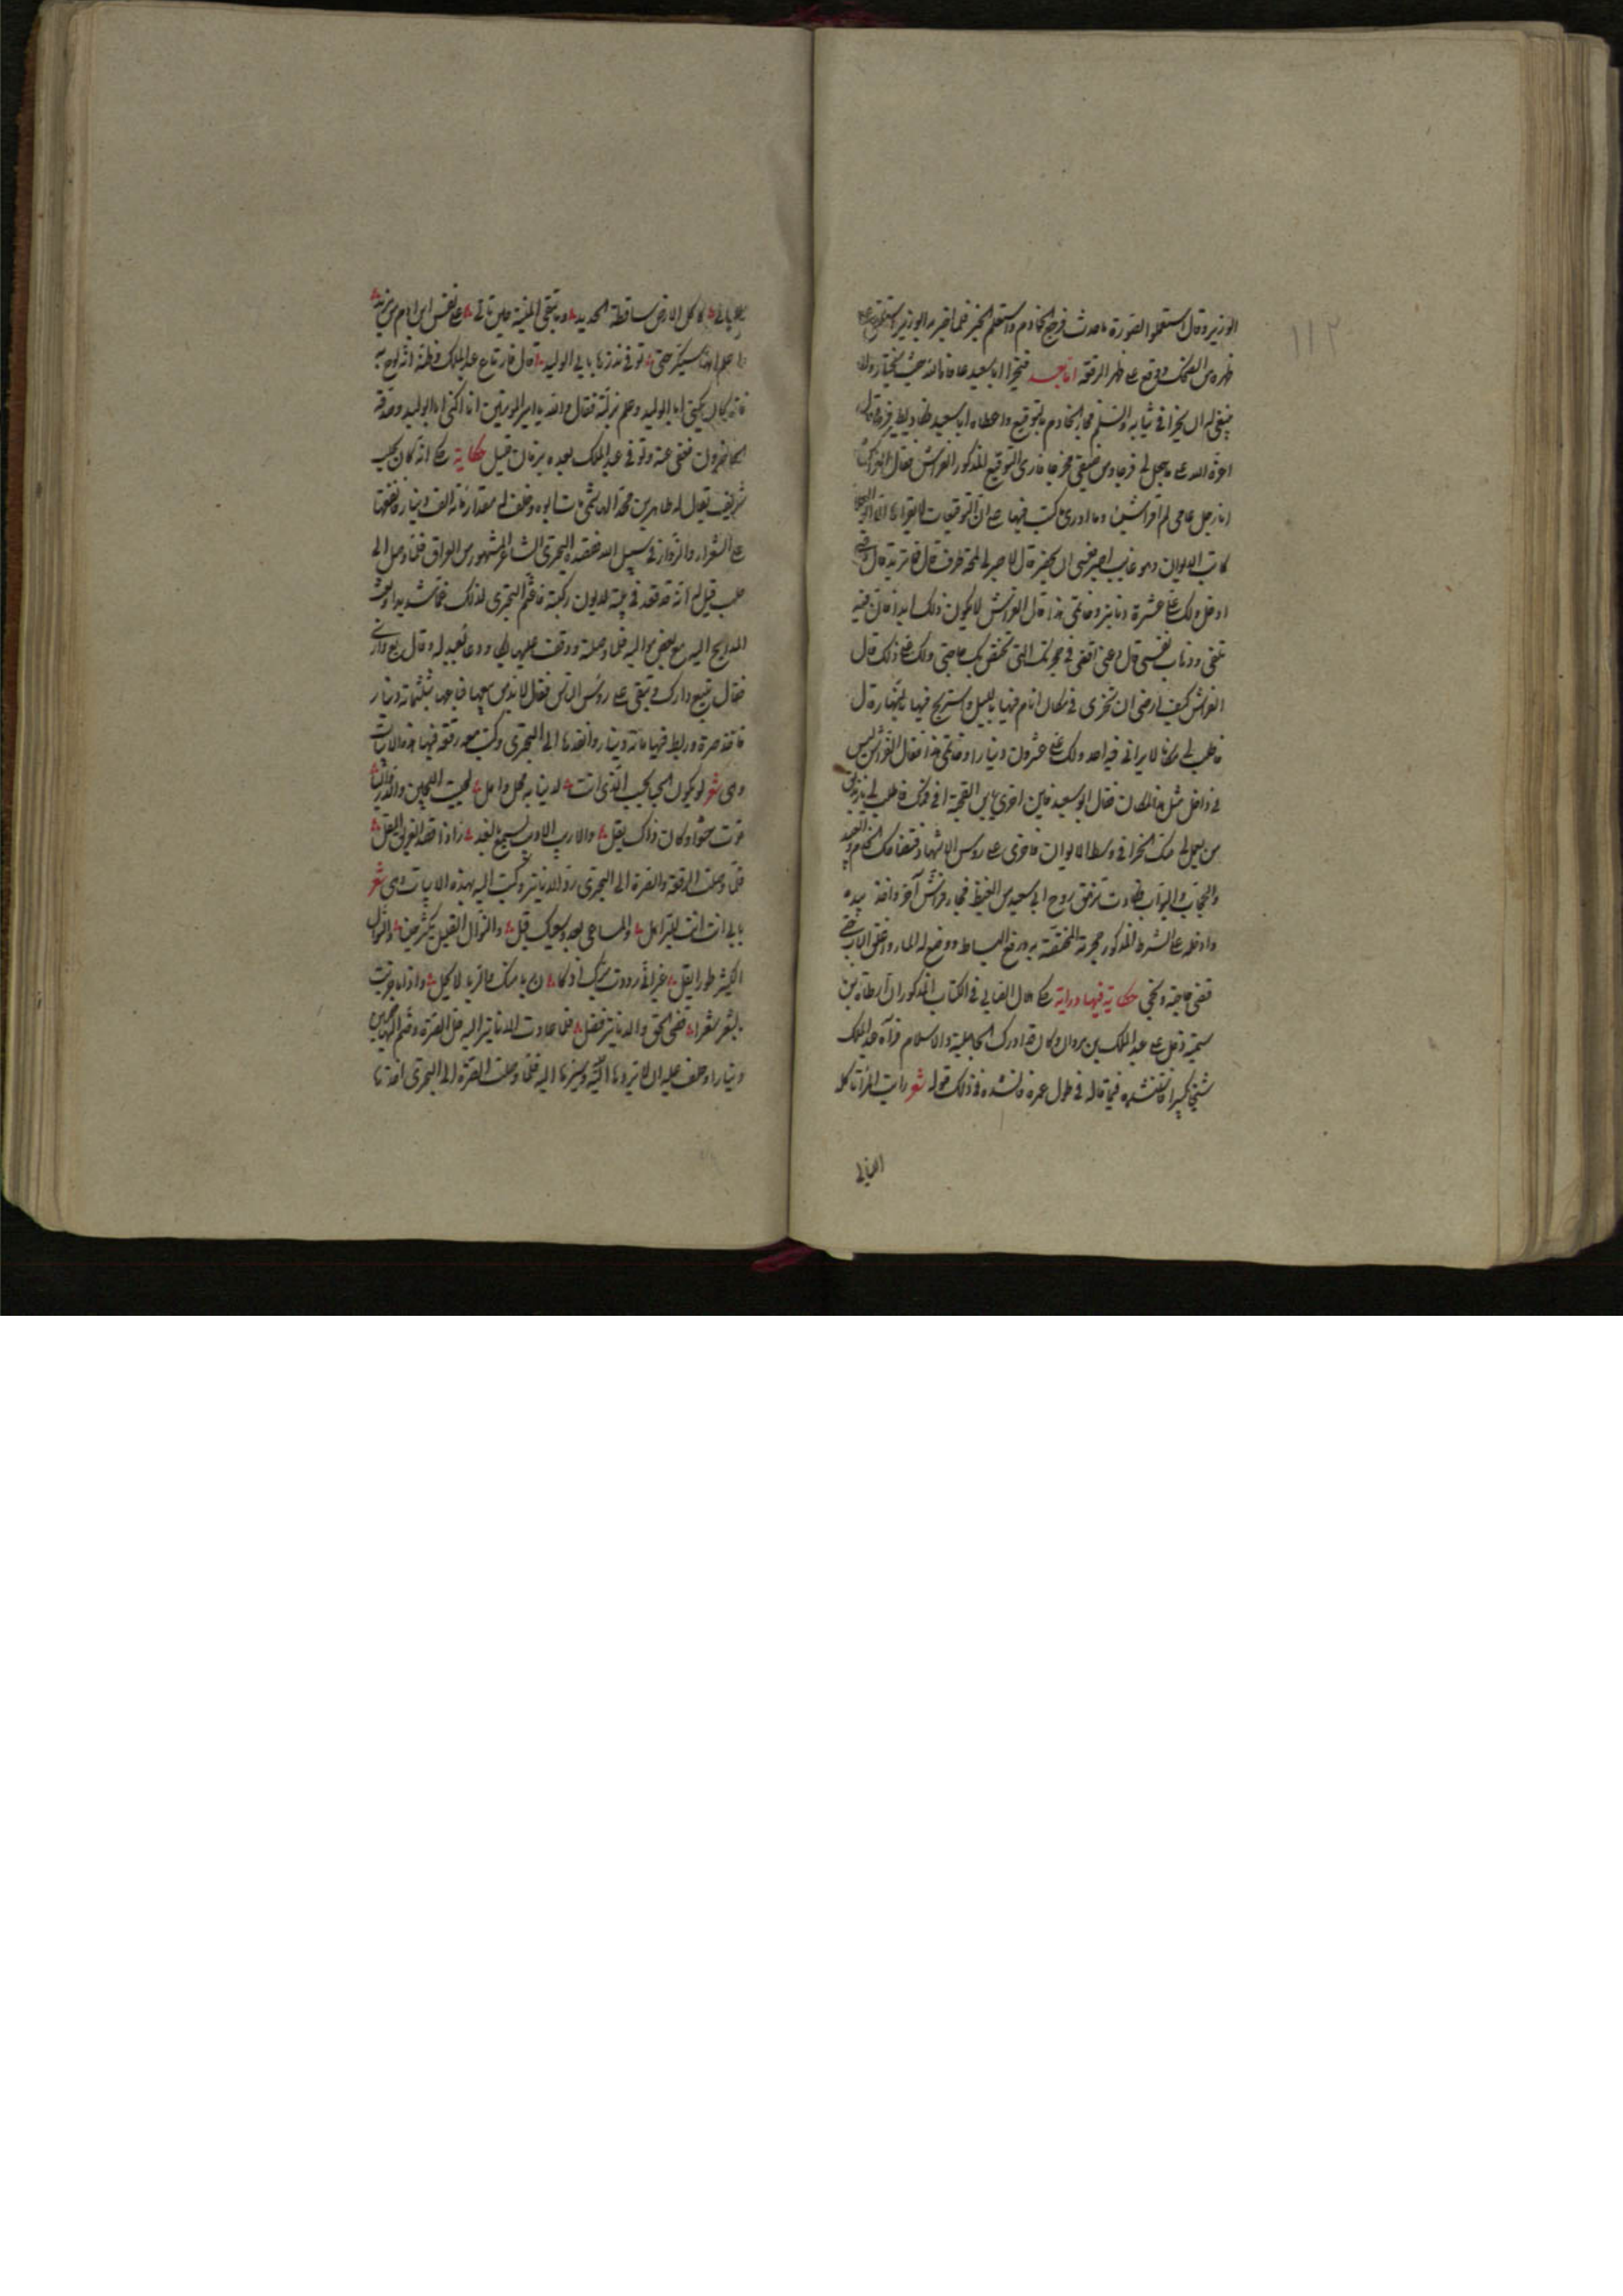 ١١٢
الوزير وقال استعملوا الصورة ما حدث فرجع الخادم واستعلم الخبر فلما اخبر به الوزير استلقى على
ظهره من الضحك ووقع على ظهر الرقعة اما بعد فيخرأ ابا سعيد عافاه الله حيث يختار وان
ينبغي له ان يخرأ في ثيابه والسلم فجاء الخادم بالتوقيع واعطاه ابا سعيد
اعزه الله ما يجعل لي فرجا ومن ضيقي مخرجا فارى التوقيع المذكور الفراش فقال الفراش
انا رجل عامي لم اقرأ شيئا وما ادري ما كتب فيها على ان التوقيعات لا يقرأها الا
كاتب الديوان وهو غايب اصبر حتى ان يحضر قال لا صبر لي لمحة طرف قال فما تريد قال
ادخل ولك علي عشرة دنانير وخاتمي هذا قال الفراش لا يكون ذلك ابدا فان فيه
تلفي وذهاب نفسي قال دعني اقضي في حجرتك التي تختص بك حاجتي ولك علي ذلك قال
الفراش كيف ارضى ان تخرى في مكان انام فيها بالليل واستريح فيها بالنهار قال
فاطلب لي مكانا لا يراني فيه احد ولك علي عشرون دينارا وخاتمي هذا فقال الفراش ليس
في داخل مثل هذا المكان فقال ابو سعيد فاين اخرى يا بن القحبة
من يعمل لي منك الخرا في وسط الايوان فاخرى على روس الاشهاد فضحك الخدام والعبيد
والحجاب والبواب وكادت تزهق روح ابي سعيد من الغيظ فجاء فراش آخر واخذ بيده
وادخله على الشرط المذكور حجرته المختصة به ورفع البساط ووضع له الماء واغلق الباب حتى
قضى حاجته ونجى حكاية فيها دراية حكى القالي في الكتاب المذكور ان ارطاة بن
سمية دخل على عبد الملك بن مروان وكان قد ادرك الجاهلية والاسلام فرآه عبد الملك
شيخا كبيرا فاستنشده فيما قاله في طول عمره فانشده في ذلك قوله شعر رايت المرء تاكله
الليالي
الليالي كاكل الارض ساقطة الحديد وما تبقى المنية حين تاتي على نفس ابن آدم من مزيد
واعلم انها ستكر حتى توفي نذرها بابي الوليد قال فارتاع عبد الملك وظن انه لوح به
فانه كان يكنى ابا الوليد وعلم زلته فقال والله يا امير المومنين انا اكنى ابا الوليد وصدقه
الحاضرون فعفى عنه وتوفي عبد الملك بعده بزمان قليل حكاية حكى انه كان بحلب
شريف يقال له طاهر بن محمد الهاشمي مات ابوه وخلف له مقدار مائة الف دينار فانفقها
على الشعراء والزوار في سبيل الله فقصده البحتري الشاعر المشهور من العراق فلما وصل الى
حلب قيل له انه قد قعد في بيته لديون ركبته فاغتم البحتري لذلك غما شديدا وبعث
المدايح اليه مع بعض مواليه فلما وصلته ووقف عليها بكى ودعا بعبد له وقال بع داري
فقال تبيع دارك وتبقى على روس الناس فقال لا بد من بيعها فباعها بثلثمائة دينار
فاخذ صرة وربط فيها مائة دينار وانفذها الى البحتري وكتب معه رقعة فيها هذه الابيات
وهي شعر لو يكون الحبا بحسب الذي انت لدينا به محل واهل لحبيت اللجين والدر واليا
قوت حثوا وكان ذاك يقل والاديب الاريب يسمح بالعذر اذا قصر الصديق المقل
فلما وصلت الرقعة والصرة الى البحتري رد الدنانير وكتب اليه بهذه الابيات وهي شعر
بابي انت انت للبر اهل والمساعي بعد وسعيك قبل والنوال القليل يكثر ان والنوال
الكثير طورا يقل غير اني رددت برك اذ كان ربا منك والربا لا يحل واذا ما جزيت
بالشعر شعرا قضي الحق والدنانير فضل فلما عادت الدنانير اليه حل الصرة وضم اليها خمسين
دينارا وحلف عليه ان لا يردها اليه وسيرها اليه فلما وصلت الصرة الى البحتري اخذها